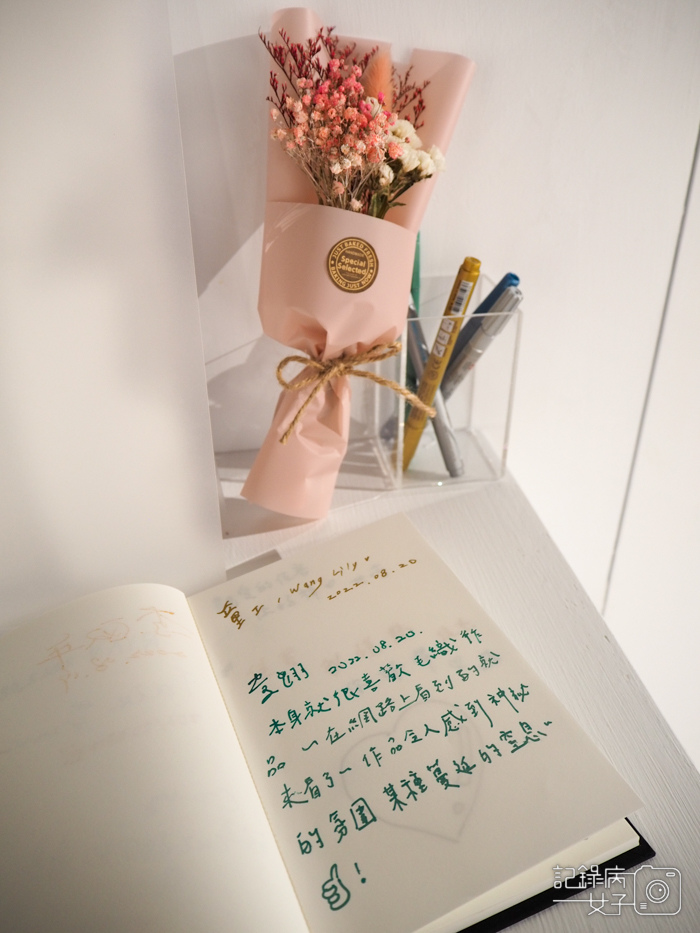 JUST BAKED FRESH
Special
Selected
BAKING JUST NOW
童工, Wang Lily
2022.08.20
2022.08.20.
本身就很喜歡毛織作
品 一在網路上看到的就
來看了~ 作品令人感到神祕
的氛圍 某種蔓延的
!
記錄病
女子